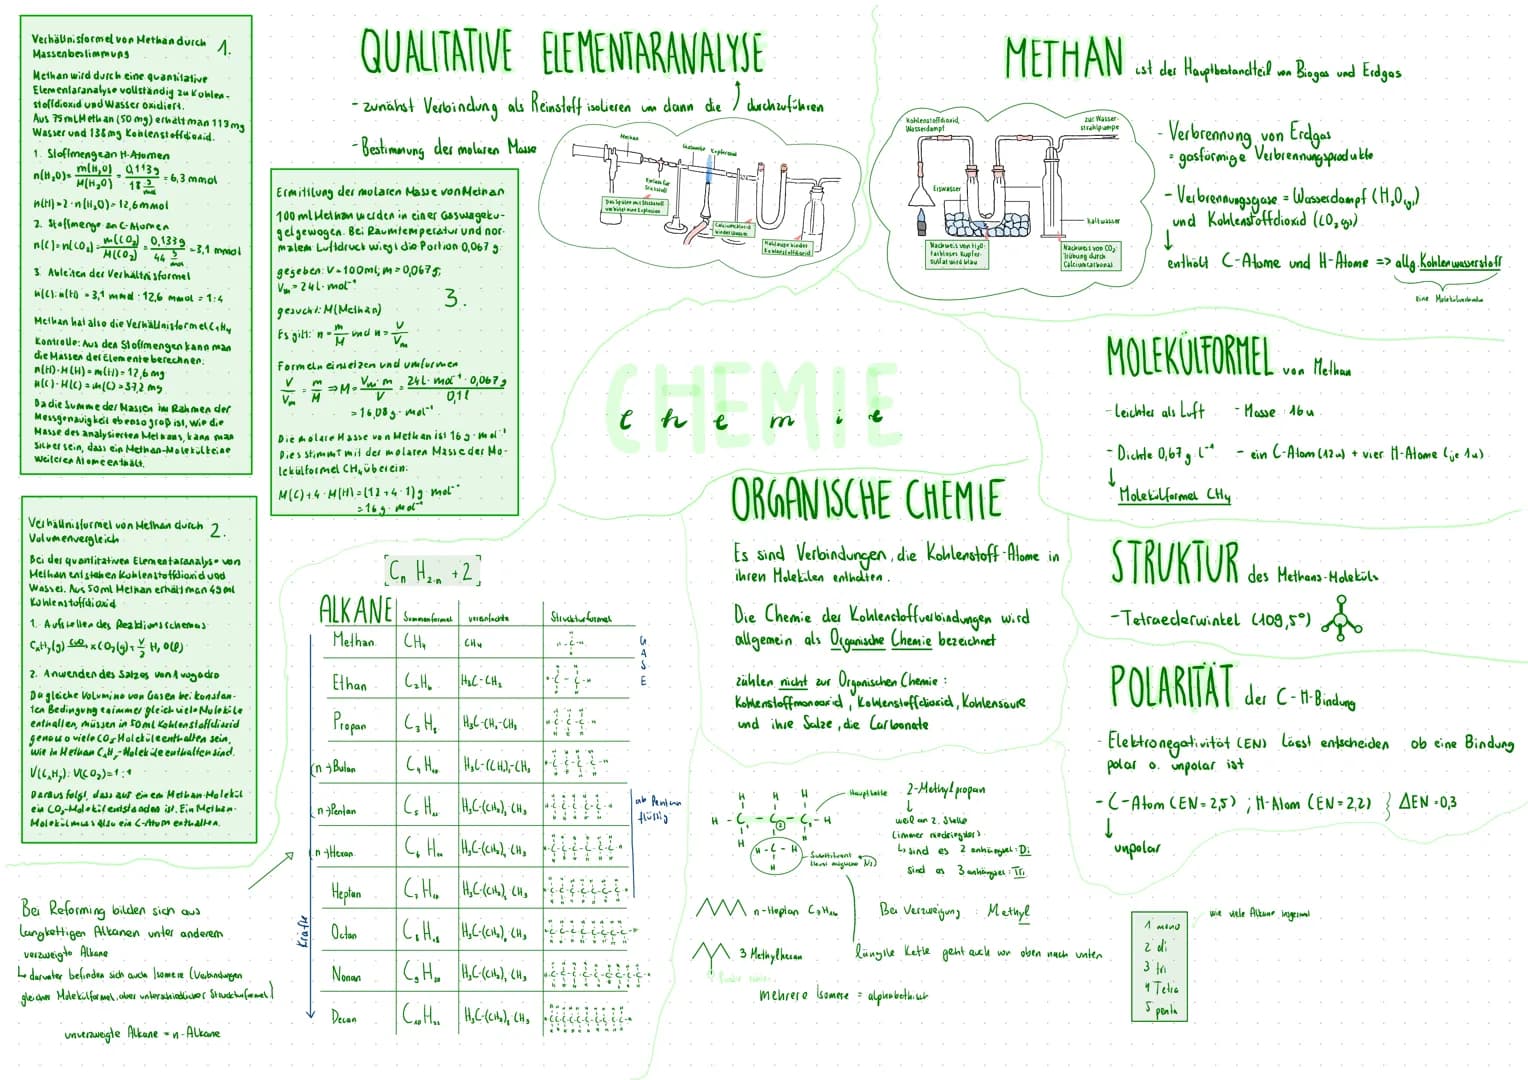 Verhältnisformel von Methan durch 1.
Massenbestimmung
Methan wird durch eine quantitative
Elementaranalyse vollständig zu Kohlen-
stoffdioxid und Wasser oxidiert.
Aus 75ml Methan (50 mg) erhält man 113 mg
Wasser und 138mg Kohlenstoffdioxid.
1. Stoffmenge an H-Atomen
n(H₂O) = m(H₂O) / M(H₂O) = 0,113 g / 18 g/mol = 6,3 mmol
n(H) = 2 · n(H₂O) = 12,6 mmol
2. Stoffmenge an C-Atomen
n(C) = n(CO₂) = m(CO₂) / M(CO₂) = 0,133 g / 44 g/mol = 3,1 mmol
3. Ableiten der Verhältnisformel
n(C) : n(H) = 3,1 mmol : 12,6 mmol = 1:4
Methan hat also die Verhältnisformel C₁H₄
Kontrolle: Aus den Stoffmengen kann man
die Massen der Elemente berechnen:
n(H) · M(H) = m(H) = 12,6 mg
n(C) · M(C) = m(C) = 37,2 mg
Da die Summe der Massen im Rahmen der
Messgenauigkeit ebenso groß ist, wie die
Masse des analysierten Methans, kann man
sicher sein, dass ein Methan-Molekül keine
weiteren Atome enthält.
Verhältnisformel von Methan durch 2.
Volumenvergleich
Bei der quantitativen Elementaranalyse von
Methan entstehen Kohlenstoffdioxid und
Wasser. Aus 50ml Methan erhält man 49ml
Kohlenstoffdioxid
1. Aufstellen des Reaktionsschemas
CₓHᵧ(g) CuO→ x CO₂(g) + y/2 H₂O(l)
2. Anwenden des Satzes von Avogadro
Da gleiche Volumina von Gasen bei konstan-
ten Bedingungen immer gleich viele Moleküle
enthalten, müssen in 50ml Kohlenstoffdioxid
genauso viele CO₂-Moleküle enthalten sein,
wie in Methan CₓHᵧ-Moleküle enthalten sind.
V(CₓHᵧ) : V(CO₂) = 1:1
Daraus folgt, dass aus einem Methan-Molekül
ein CO₂-Molekül entstanden ist. Ein Methan-
Molekül muss also ein C-Atom enthalten.
Bei Reforming bilden sich aus
langkettigen Alkanen unter anderem
verzweigte Alkane
↳ darunter befinden sich auch Isomere (Verbindungen
gleicher Molekülformel, aber unterschiedlicher Strukturformel)
unverzweigte Alkane = n-Alkane
QUALITATIVE ELEMENTARANALYSE
- zunähst Verbindung als Reinstoff isolieren um dann die ↑ durchzuführen
- Bestimmung der molaren Masse
Methan
Glaswolle
Kupferoxid
Das Spülen mit Stickstoff
verhindert eine Explosion
Calciumchlorid
bindet Wasser
Natlauge bindet
Kohlenstoffdioxid
Ermittlung der molaren Masse von Methan
100 ml Methan werden in einer Gaswägeku-
gel gewogen. Bei Raumtemperatur und nor-
malem Luftdruck wiegt die Portion 0,067 g.
gegeben: V = 100ml; m = 0,067g;
Vₘ = 24 L · mol⁻¹
gesucht: M(Methan)
3.
Es gilt: n = m/M und n = V/Vₘ
Formeln einsetzen und umformen
V/Vₘ = m/M ⇒ M = Vₘ · m / V = 24 l · mol⁻¹ · 0,067 g / 0,1 l
= 16,08 g · mol⁻¹
Die molare Masse von Methan ist 16 g · mol⁻¹
Dies stimmt mit der molaren Masse der Mo-
lekülformel CH₄ überein:
M(C) + 4 · M(H) = (12 + 4 · 1) g · mol⁻¹
= 16 g · mol⁻¹
METHAN ist der Hauptbestandteil von Biogas und Erdgas
Kohlenstoffdioxid,
Wasserdampf
zur Wasser-
strahlpumpe
Eiswasser
Kaltwasser
Nachweis von H₂O:
farbloses Kupfer-
sulfat wird blau
Nachweis von CO₂:
Trübung durch
Calciumcarbonat
- Verbrennung von Erdgas
= gasförmige Verbrennungsprodukte
- Verbrennungsgase = Wasserdampf (H₂O(g))
und Kohlenstoffdioxid (CO₂(g))
↓
enthält C-Atome und H-Atome => allg. Kohlenwasserstoff
CHEMIE
chemie
MOLEKÜLFORMEL von Methan
- leichter als Luft - Masse 16u
- Dichte 0,67g L⁻¹ - ein C-Atom (12u) + vier H-Atome (je 1u)
↓
Molekülformel CH₄
STRUKTUR des Methans-Moleküls
- Tetraederwinkel (109,5°)
POLARITÄT der C-H-Bindung
- Elektronegativität (EN) lässt entscheiden ob eine Bindung
polar o. unpolar ist
- C-Atom (EN=2,5) ; H-Atom (EN=2,2) } ΔEN=0,3
↓
unpolar
ORGANISCHE CHEMIE
Es sind Verbindungen, die Kohlenstoff-Atome in
ihren Molekülen enthalten.
Die Chemie der Kohlenstoffverbindungen wird
allgemein als Organische Chemie bezeichnet
zählen nicht zur Organischen Chemie:
Kohlenstoffmonoxid, Kohlenstoffdioxid, Kohlensäure
und ihre Salze, die Carbonate
[Cₙ H₂·ₙ +2]
ALKANE Summenformel vereinfachte Strukturformel
Methan CH₄ CH₄
Ethan C₂H₆ H₃C-CH₃
Propan C₃H₈ H₃C-CH₂-CH₃
(n-)Butan C₄H₁₀ H₃C-(CH₂)₂-CH₃
(n-)Pentan C₅H₁₂ H₃C-(CH₂)₃ CH₃
(n-)Hexan C₆H₁₄ H₃C-(CH₂)₄ CH₃
Heptan C₇H₁₆ H₃C-(CH₂)₅ CH₃
Octan C₈H₁₈ H₃C-(CH₂)₆ CH₃
Nonan C₉H₂₀ H₃C-(CH₂)₇ CH₃
Decan C₁₀H₂₂ H₃C-(CH₂)₈ CH₃
GASE
ab Pentan
flüssig
Kräfte
Hauptkette
2-Methylpropan
↓
weil an 2. Stelle
(immer niedrigster)
↳ sind es 2 anhängsel: Di
sind es 3 anhängsel: Tri
H H H
H - C₁ - C② - C₃ - H
H H
H - C - H
H
Substituent
n-Heptan C₇H₁₆
Bei Verzweigung : Methyl
3 Methylhexan
längste Kette geht auch von oben nach unten
mehrere Isomere = alphabetisch
1 mono
2 di
3 tri
4 Tetra
5 penta
wie viele Alkane insgesamt